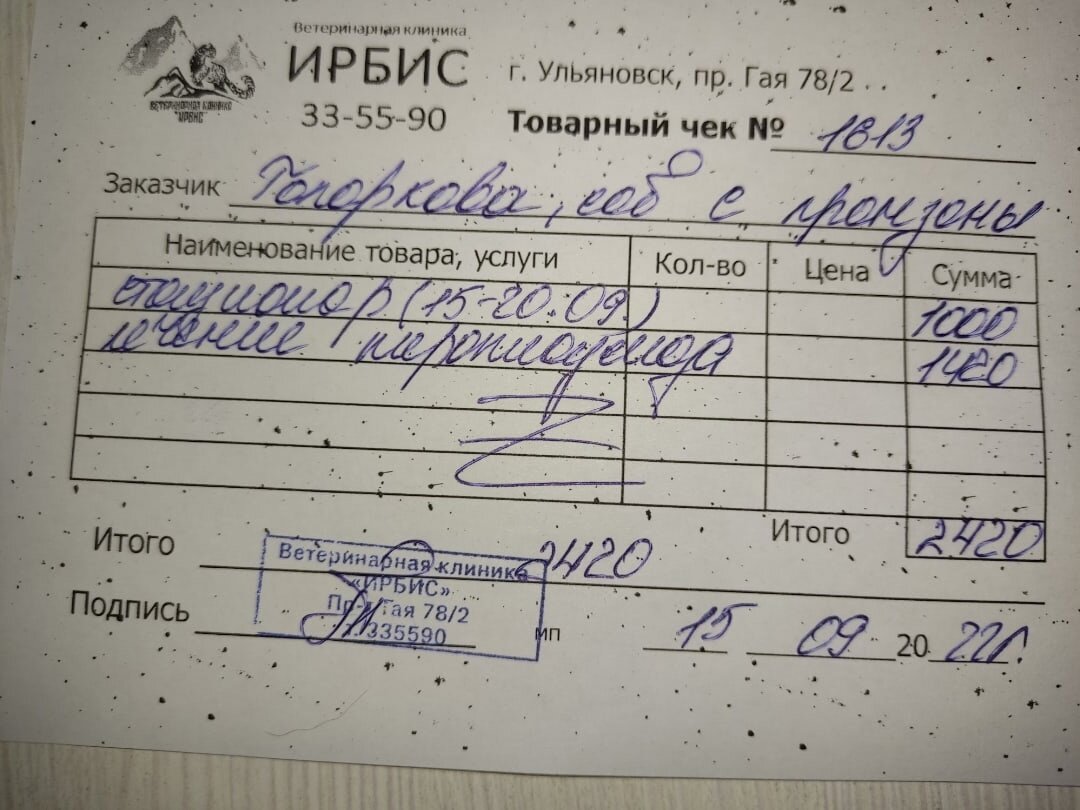 Ветеринарная клиника
ИРБИС
г. Ульяновск, пр. Гая 78/2
ВЕТЕРИНАРНАЯ КЛИНИКА
"ИРБИС"
33-55-90
Товарный чек № 1613
Заказчик Топоркова, соб с промзоны
Наименование товара, услуги Кол-во Цена Сумма
стационар (15-20.09.) 1000
лечение 1420
Итого 2420
Итого 2420
Ветеринарная клиника
«ИРБИС»
Пр-т Гая 78/2
т. 335590
Подпись
мп
15 09 2022г.